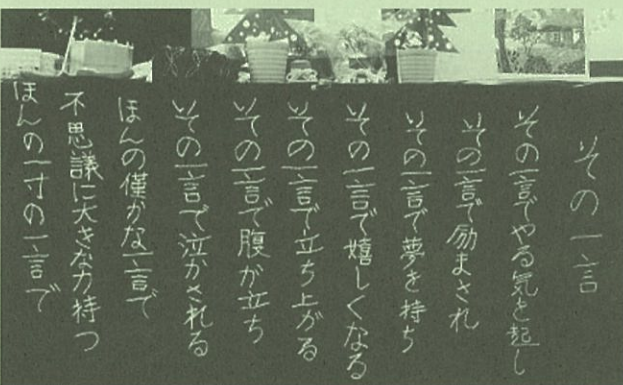 その一言
その一言でやる気を起し
その一言で励まされ
その一言で夢を持ち
その一言で嬉しくなる
その一言で立ち上がる
その一言で腹が立ち
その一言で泣かされる
ほんの僅かな一言で
不思議に大きな力持つ
ほんの一寸の一言で